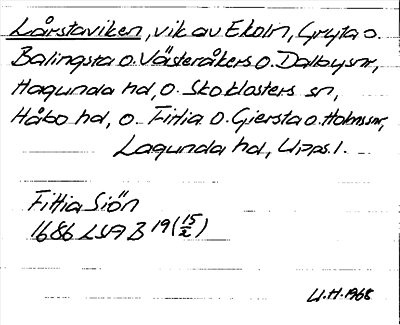 Lårstaviken, vik av Ekoln, Gryta o.
Balingsta o. Västeråkers o. Dalby snr,
Hagunda hd, o. Skoklosters sn,
Håbo hd, o. Fittia o. Giersta o. Holms snr,
Lagunda hd, Upps. l.
Fittia Siön
1686 LSA B 19 (15/2)
U.H. 1968